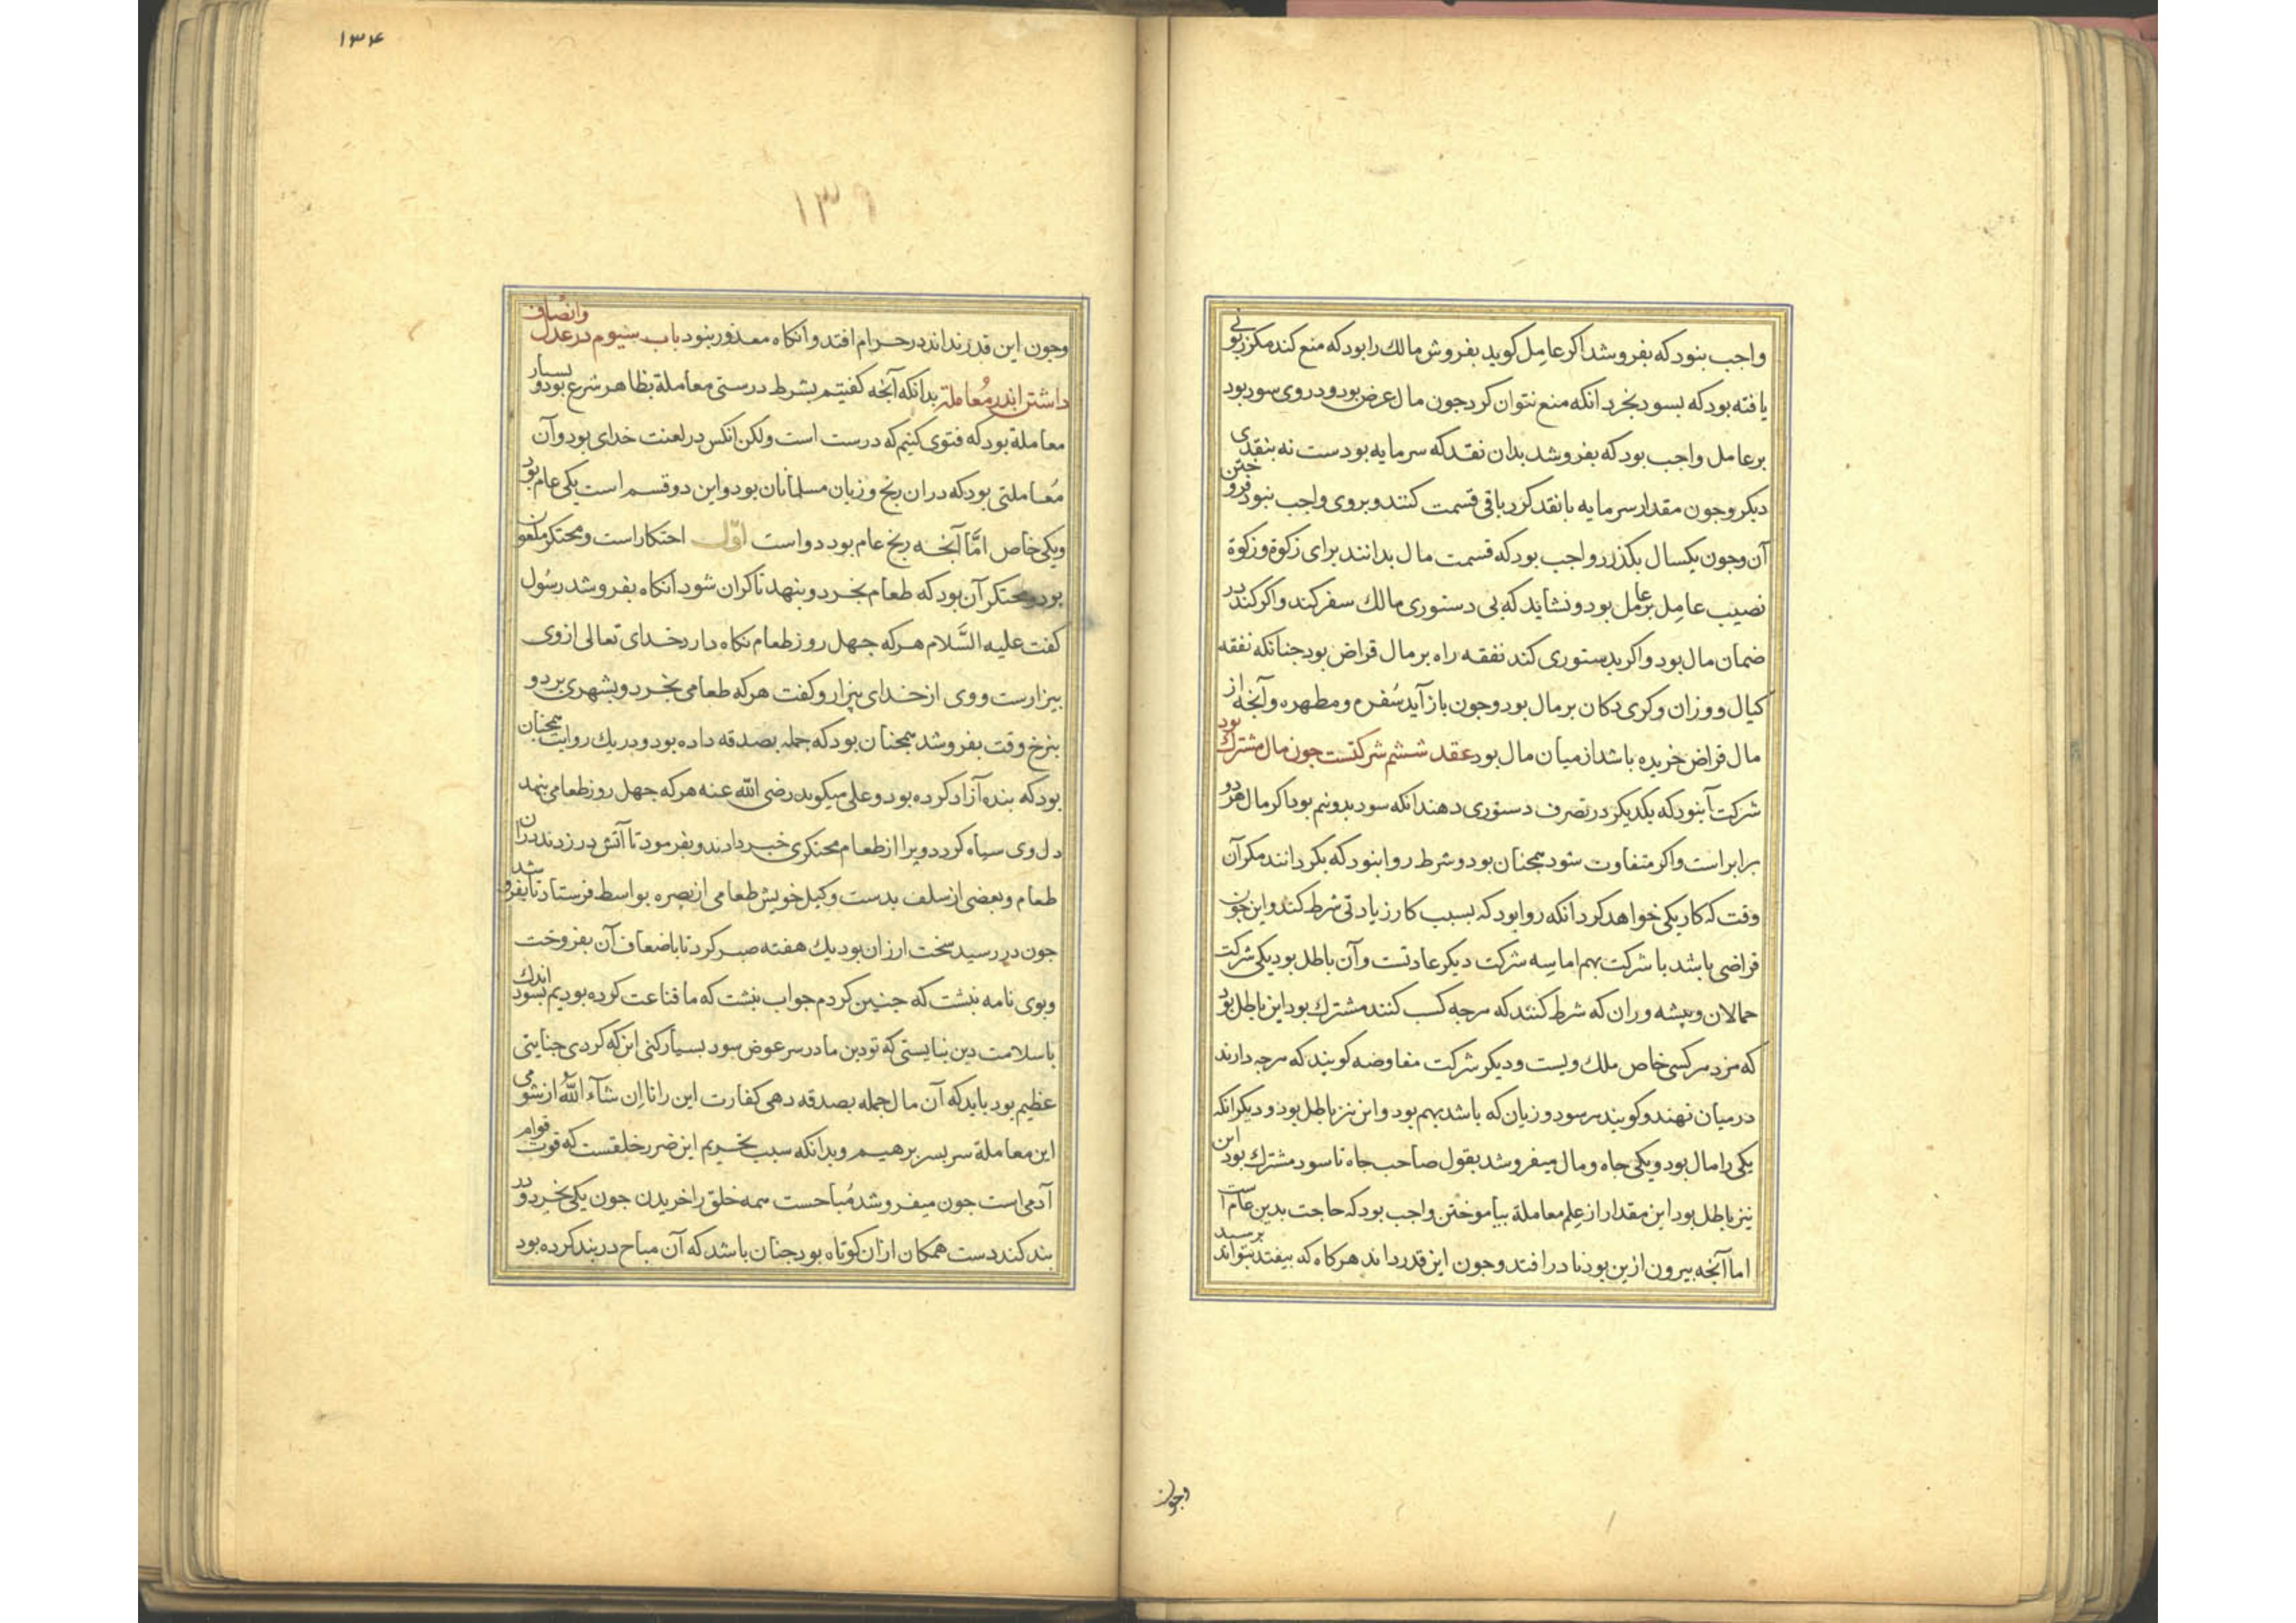 واجب بنود که بفروشد اکر عامل کوید بفروش مالك را بود که منع کند مکر زبونی
یافته بود که بسود بخرد انکه منع نتوان کرد جون مال عرض بود و در وی سود بود
بر عامل واجب بود که بفروشد بدان نقد که سرمایه بودست نه بنقدی
دیکر و جون مقدار سرمایه با نقد کرد باقی قسمت کنند و بر وی واجب نبود فروختن
آن و جون یکسال بکذرد واجب بود که قسمت مال بدانند برای زکوة و زکوة
نصیب عامل بر عامل بود و نشاید که بی دستوری مالك سفر کند و اکر کند در
ضمان مال بود و اکر بدستوری کند نفقه راه بر مال قراض بود جنانکه نفقه
کیال و وزان و کری دکان بر مال بود و جون باز آید سُفره و مطهره و آنجه از
مال قراض خریده باشد از میان مال بود عقد ششم شرکتست جون مال مشترك بود
شرکت آنبود که یکدیکر در تصرف دستوری دهند انکه سود بدو نیم بود اکر مال هر دو
برابر است و اکر متفاوت شود همجنان بود و شرط روا بنود که بکردانند مکر آن
وقت که کار یکی خواهد کرد انکه روا بود که بسبب کار زیادتی شرط کند و این جون
قراضی باشد با شرکت بهم اما سه شرکت دیکر عادتست و آن باطل بود یکی شرکت
حمالان و پیشه وران که شرط کنند که هرجه کسب کنند مشترك بود این باطل بود
که مزد هر کسی خاص ملك ویست و دیکر شرکت مفاوضه کویند که هرجه دارند
در میان نهند و کویند هر سود و زیان که باشد بهم بود و این نیز باطل بود و دیکر انکه
یکی را مال بود و یکی جاه و مال میفروشد بقول صاحب جاه تا سود مشترك بود این
نیز باطل بود این مقدار از علم معاملة بیاموختن واجب بود که حاجت بدین عام است
اما آنجه بیرون ازین بود نادر افتد و جون این قدر داند هرکاه که بیفتد بتواند برسید
وجون
۱۳۴
۱۳۹
وجون این قدر نداند در حرام افتد و انکاه معذور بنود باب سیوم در عدل وانصاف
داشتن اندر مُعاملة بدانکه آنجه کفتیم بشرط درستی معاملة بظاهر شرع بود و بسیار
معاملة بود که فتوی کنیم که درست است ولکن انکس در لعنت خدای بود و آن
مُعاملتی بود که در ان رنج و زیان مسلمانان بود و این دو قسم است یکی عام بود
ویکی خاص امَّا آنجه رنج عام بود دو است اوّل احتکار است و محتکر ملعون
بود و محتکر آن بود که طعام بخرد و بنهد تا کران شود آنکاه بفروشد رسُول
کفت علیه السَّلام هرکه جهل روز طعام نکاه دارد خدای تعالی از وی
بیزارست و وی از خدای بیزار و کفت هرکه طعامی بخرد و بشهری برد و
بنرخ وقت بفروشد همجنان بود که جمله بصدقه داده بود و در یك روایت همجنان
بود که بنده آزاد کرده بود و علی میکوید رضی الله عنه هرکه جهل روز طعامی بنهد
دل وی سیاه کردد و ویرا از طعام محتکری خبر دادند و بفرمود تا آتش در زدند در ان
طعام و بعضی از سلف بدست وکیل خویش طعامی از بصره بواسط فرستاد تا بفروشد
جون در رسید سخت ارزان بود یك هفته صبر کرد تا باضعاف آن بفروخت
وبوی نامه نبشت که جنین کردم جواب نبشت که ما قناعت کرده بودیم بسود اندك
با سلامت دین نبایستی که تو دین ما در سر عوض سود بسیار کنی این که کردی جنایتی
عظیم بود باید که آن مال جمله بصدقه دهی کفارت این را تا ان شآء الله از شومی
این معاملة سر بسر برهیم و بدانکه سبب تحریم این ضرر خلقست که قوت قوام
آدمی است جون میفروشد مُباحست همه خلق را خریدن جون یکی بخرد و در
بند کند دست همکان از ان کوتاه بود جنان باشد که آن مباح در بند کرده بود